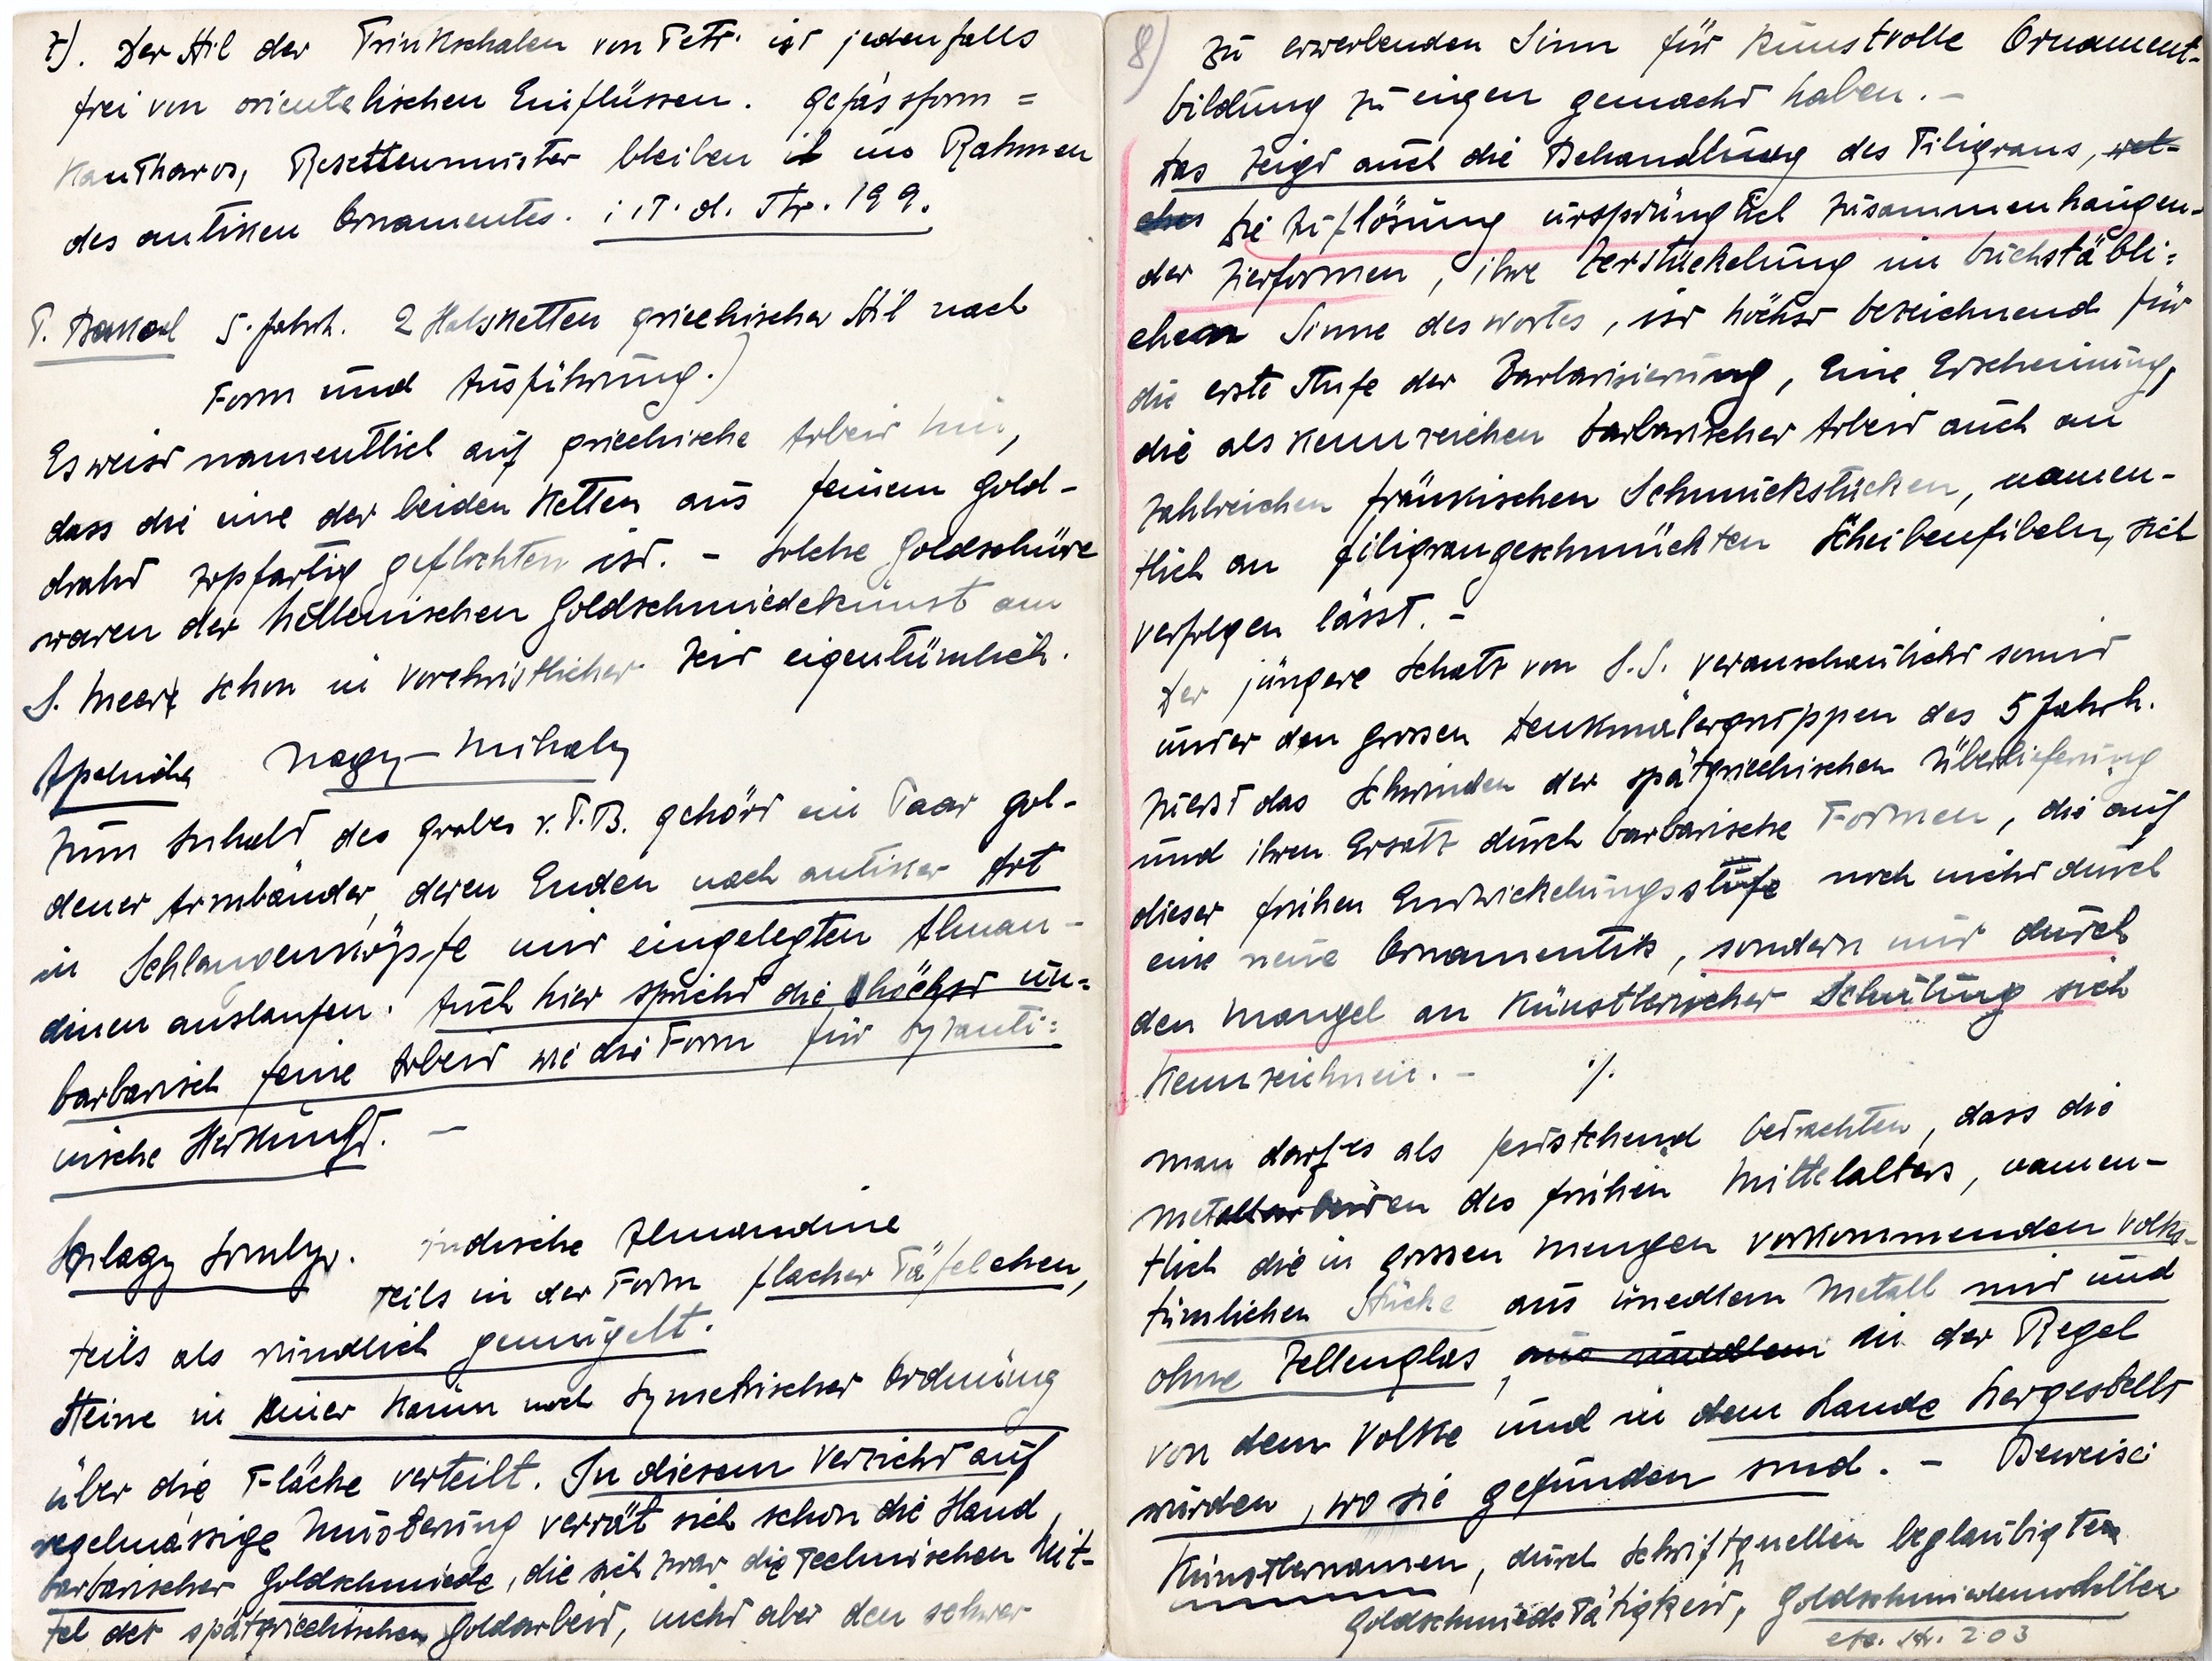 7). Der Stil der Trinkschalen von Petr. ist jedenfalls
frei von orientalischen Einflüssen. Gefässform =
Kantharos, Rosettenmuster bleiben im Rahmen
des antiken Ornamentes. i. T. d. Str. 199.
P. Bakod 5. Jahrh. 2 Halsketten griechischer Stil nach
Form und Ausführung.)
Es weist namentlich auf griechische Arbeit hin,
dass die eine der beiden Ketten aus feinem Gold-
draht zopfartig geflochten ist. - Solche Goldschüre
waren der hellenischen Goldschmiedekunst am
S. Meere schon in vorchristlicher Zeit eigentümlich.
Nagy-Mihaly
Zum Inhalt des Grabes v. P.B. gehört ein Paar gol-
dener Armbänder, deren Enden nach antiker Art
in Schlangenköpfe mit eingelegten Alman-
dinen auslaufen. Auch hier spricht die höchst un-
barbarisch feine Arbeit wie die Form für byzanti=
nische Herkunft. —
Szilagy Somlyo. indische Almandine
teils in der Form flacher Täfelchen,
teils als rundlich gemugelt.
Steine in keiner kaum noch symetrischer Ordnung
über die Fläche verteilt. In diesem Verzicht auf
regelmässige Musterung verrät sich schon die Hand
barbarischer Goldschmiede, die sich zwar die technischen Mit-
tel der spätgriechischen Goldarbeit, nicht aber den schwer
8) zu erwerbenden Sinn für kunstvolle Ornament-
bildung zu eigen gemacht haben. -
Das zeigt auch die Behandlung des Filigrans, wel-
ches Die Auflösung ursprünglich zusammenhängen-
der Zierformen, ihre Zerstückelung im buchstäbli=
chen Sinne des Wortes, ist höchst bezeichnend für
die erste Stufe der Barbarisierung, Eine Erscheinung,
die als Kennzeichen barbarischer Arbeit auch an
zahlreichen fränkischen Schmuckstücken, namen-
tlich an filigrangeschmückten Scheibenfibeln, sich
verfolgen lässt. -
Der jüngere Schatz von S.S. veranschaulicht somit
unter den grossen Denkmälergruppen des 5 Jahrh.
zuerst das Schwinden der spätgriechischen Überlieferung
und ihren Ersatz durch barbarische Formen, die auf
dieser frühen Entwickelungsstufe noch nicht durch
eine neue Ornamentik, sondern nur durch
den Mangel an künstlerischer Schulung sich
kennzeichnen. - ./.
Man darf es als feststehend betrachten, dass die
Metallarbeiten des frühen Mittelalters, namen-
tlich die in grossen Mengen vorkommenden volks-
tümlichen Stücke aus unedlem Metall mit und
ohne Zellenglas, aus unedlem in der Regel
von dem Volke und in dem Lande hergestellt
wurden, wo sie gefunden sind. - Beweise
Künstlernamen, durch Schriftquellen beglaubigten
Goldschmiede Tätigkeit, Goldschmiedemodellen
etc. Str. 203